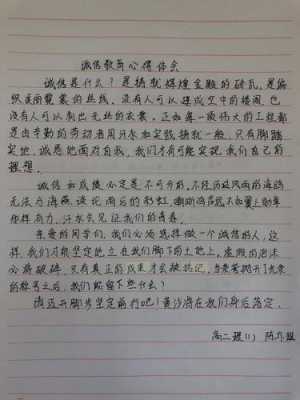 诚信教育心得体会
诚信是什么?是搞筑辉煌金殿的砖瓦,是编
织美丽霓裳的丝线。没有人可以建成空中的楼阁,也
没有人可以制出无丝的衣裳。正如每一项伟大的工程都
是由辛勤的劳动者用汗水和实践搞就一般,只有脚踏
实地,诚恳地面对自我,我们才有可能实现我们自己的
理想。
诚信和成绩必定是不可分的,不经历过风雨的海鸥
无法与海燕谈论雨后的彩虹,
有力,汗水会见证我们的青春。
亲爱的同学们,我们必须选择做一个诚信的人,这
样,我们才能坚定地立在我们脚下的土地上,虚假的泡沫
必将破碎,只有真正的成果才会被铭记,当我们抛开了光荣
的称号之后,我们能留下些什么?
请迈开脚步坚定前行吧!黄沙将在我们身后落定。
高二理(1) 陈